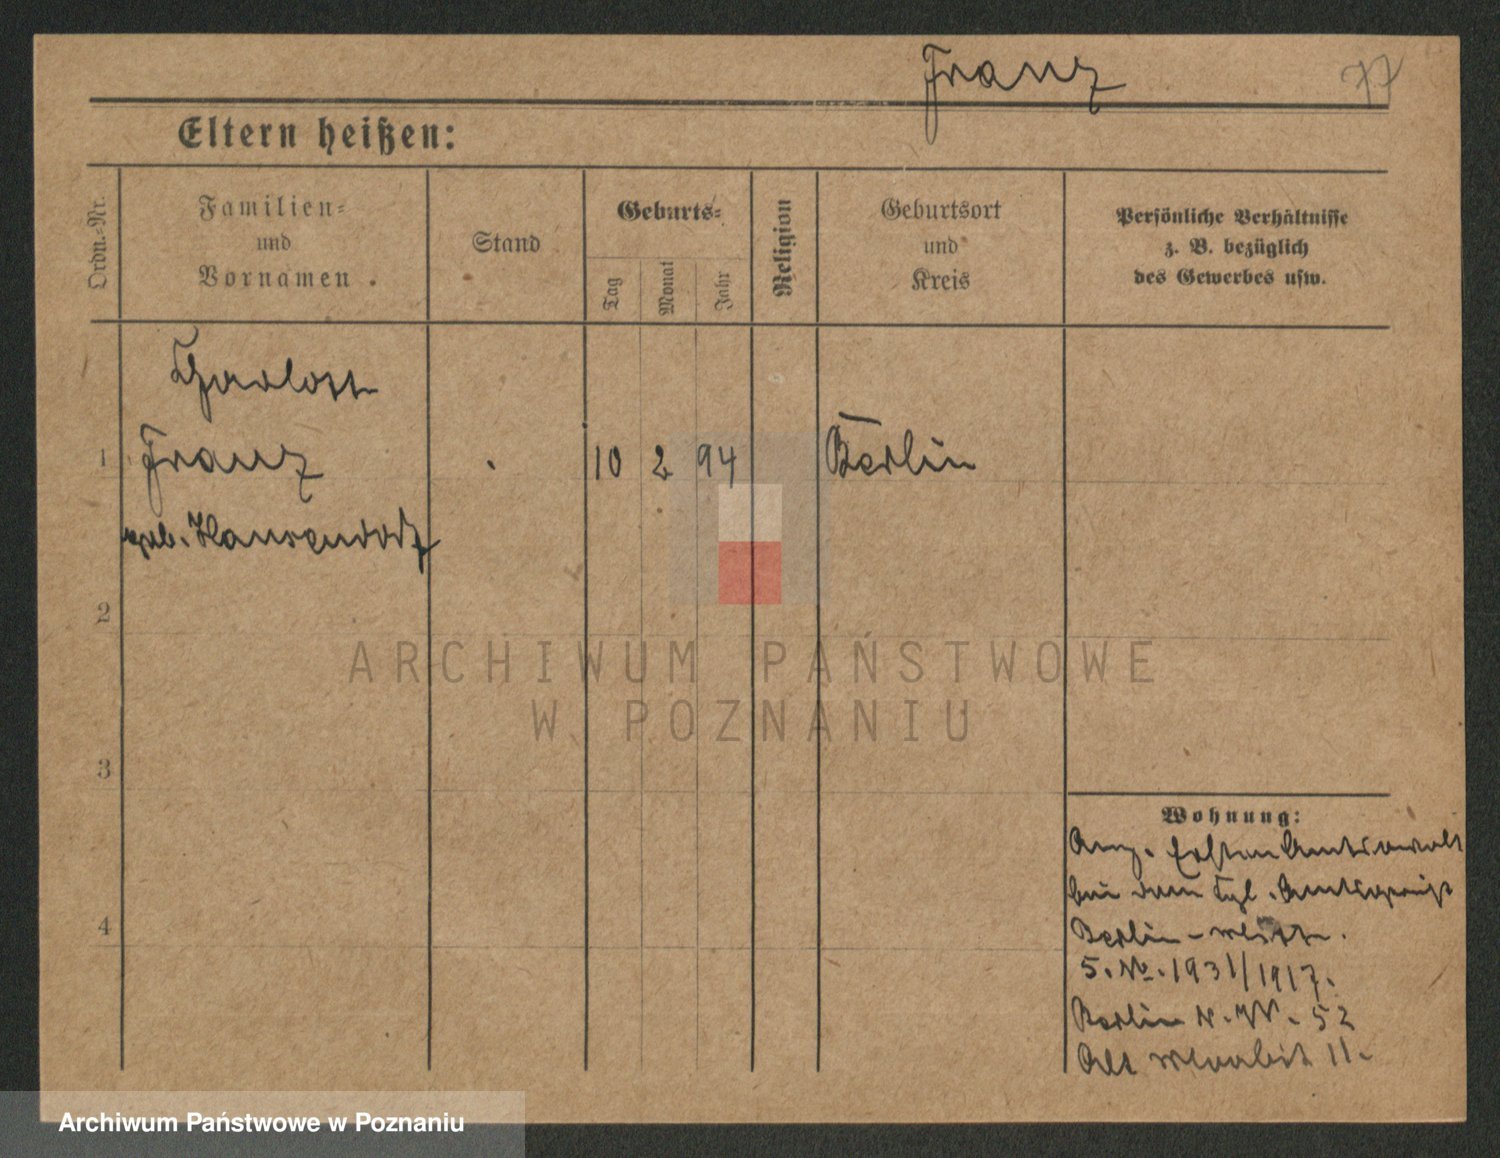 Franz 77
Eltern heißen:
Ordn.-Nr.
Familien-
und
Vornamen
Stand
Geburts-
Tag
Monat
Jahr
Religion
Geburtsort
und
Kreis
Persönliche Verhältnisse
z. B. bezüglich
des Gewerbes usw.
1 Franz 10 2 94 Berlin
geb.
2
3
4
ARCHIWUM PAŃSTWOWE
W POZNANIU
Wohnung:
Ang. Ersten Amtsanwalt
bei dem Kgl. Amtsgericht
Berlin - Mitte.
5. No. 1931/1917.
Berlin N.W. 52
Alt Moabit 11.
Archiwum Państwowe w Poznaniu